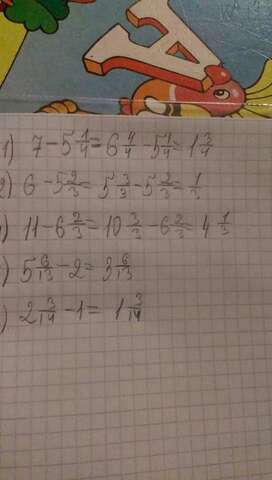 А
1) 7 - 5 1/4 = 6 4/4 - 5 1/4 = 1 3/4
2) 6 - 5 2/3 = 5 3/3 - 5 2/3 = 1/3
) 11 - 6 2/3 = 10 3/3 - 6 2/3 = 4 1/3
) 5 6/13 - 2 = 3 6/13
) 2 3/14 - 1 = 1 3/14